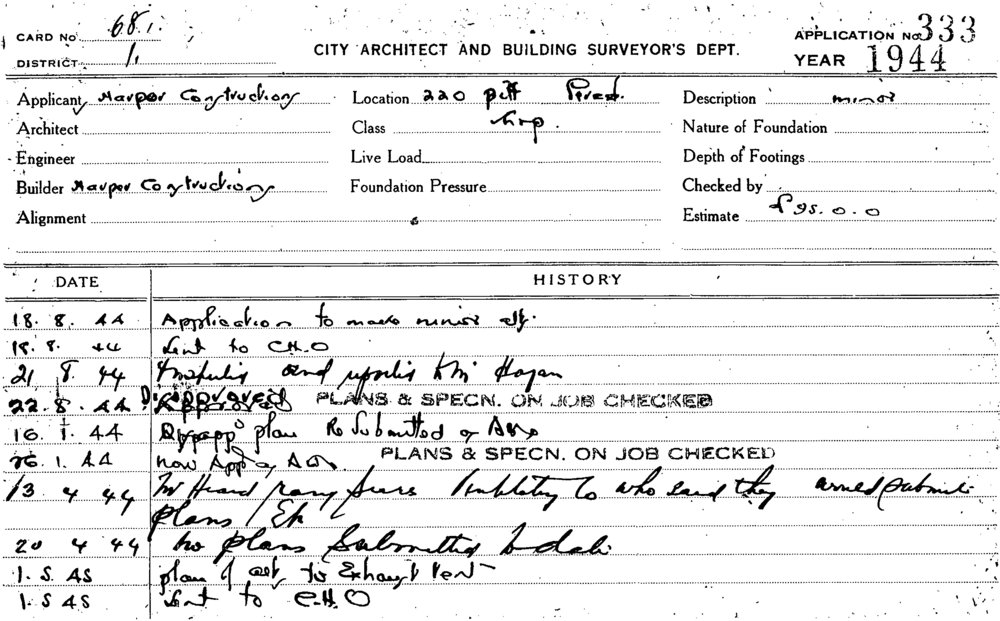 CARD No 68.
APPLICATION No. 333
DISTRICT 1.
CITY ARCHITECT AND BUILDING SURVEYOR'S DEPT.
YEAR 1944
Applicant Harper Constructions
Location 220 Pitt
Description minor
Architect
Class
Nature of Foundation
Engineer
Live Load
Depth of Footings
Builder Harper Constructions
Foundation Pressure
Checked by
Alignment
Estimate £95.0.0
DATE HISTORY
18. 8. 44 Application to make minor alt.
18. 8. 44 Sent to C.H.O
21 8 44 and Mr Hogan
22. 8. 44 Disapproved PLANS & SPECN. ON JOB CHECKED
16. 1. 44 plan Re Submitted
26. 1. 44 now App PLANS & SPECN. ON JOB CHECKED
13 4 44 Mr Heard rang to who said they submit
plans
20 4 44 No plans Submitted to date
1. 5 45 plan of alt to Exhaust Vent
1. 5 45 Sent to C.H.O